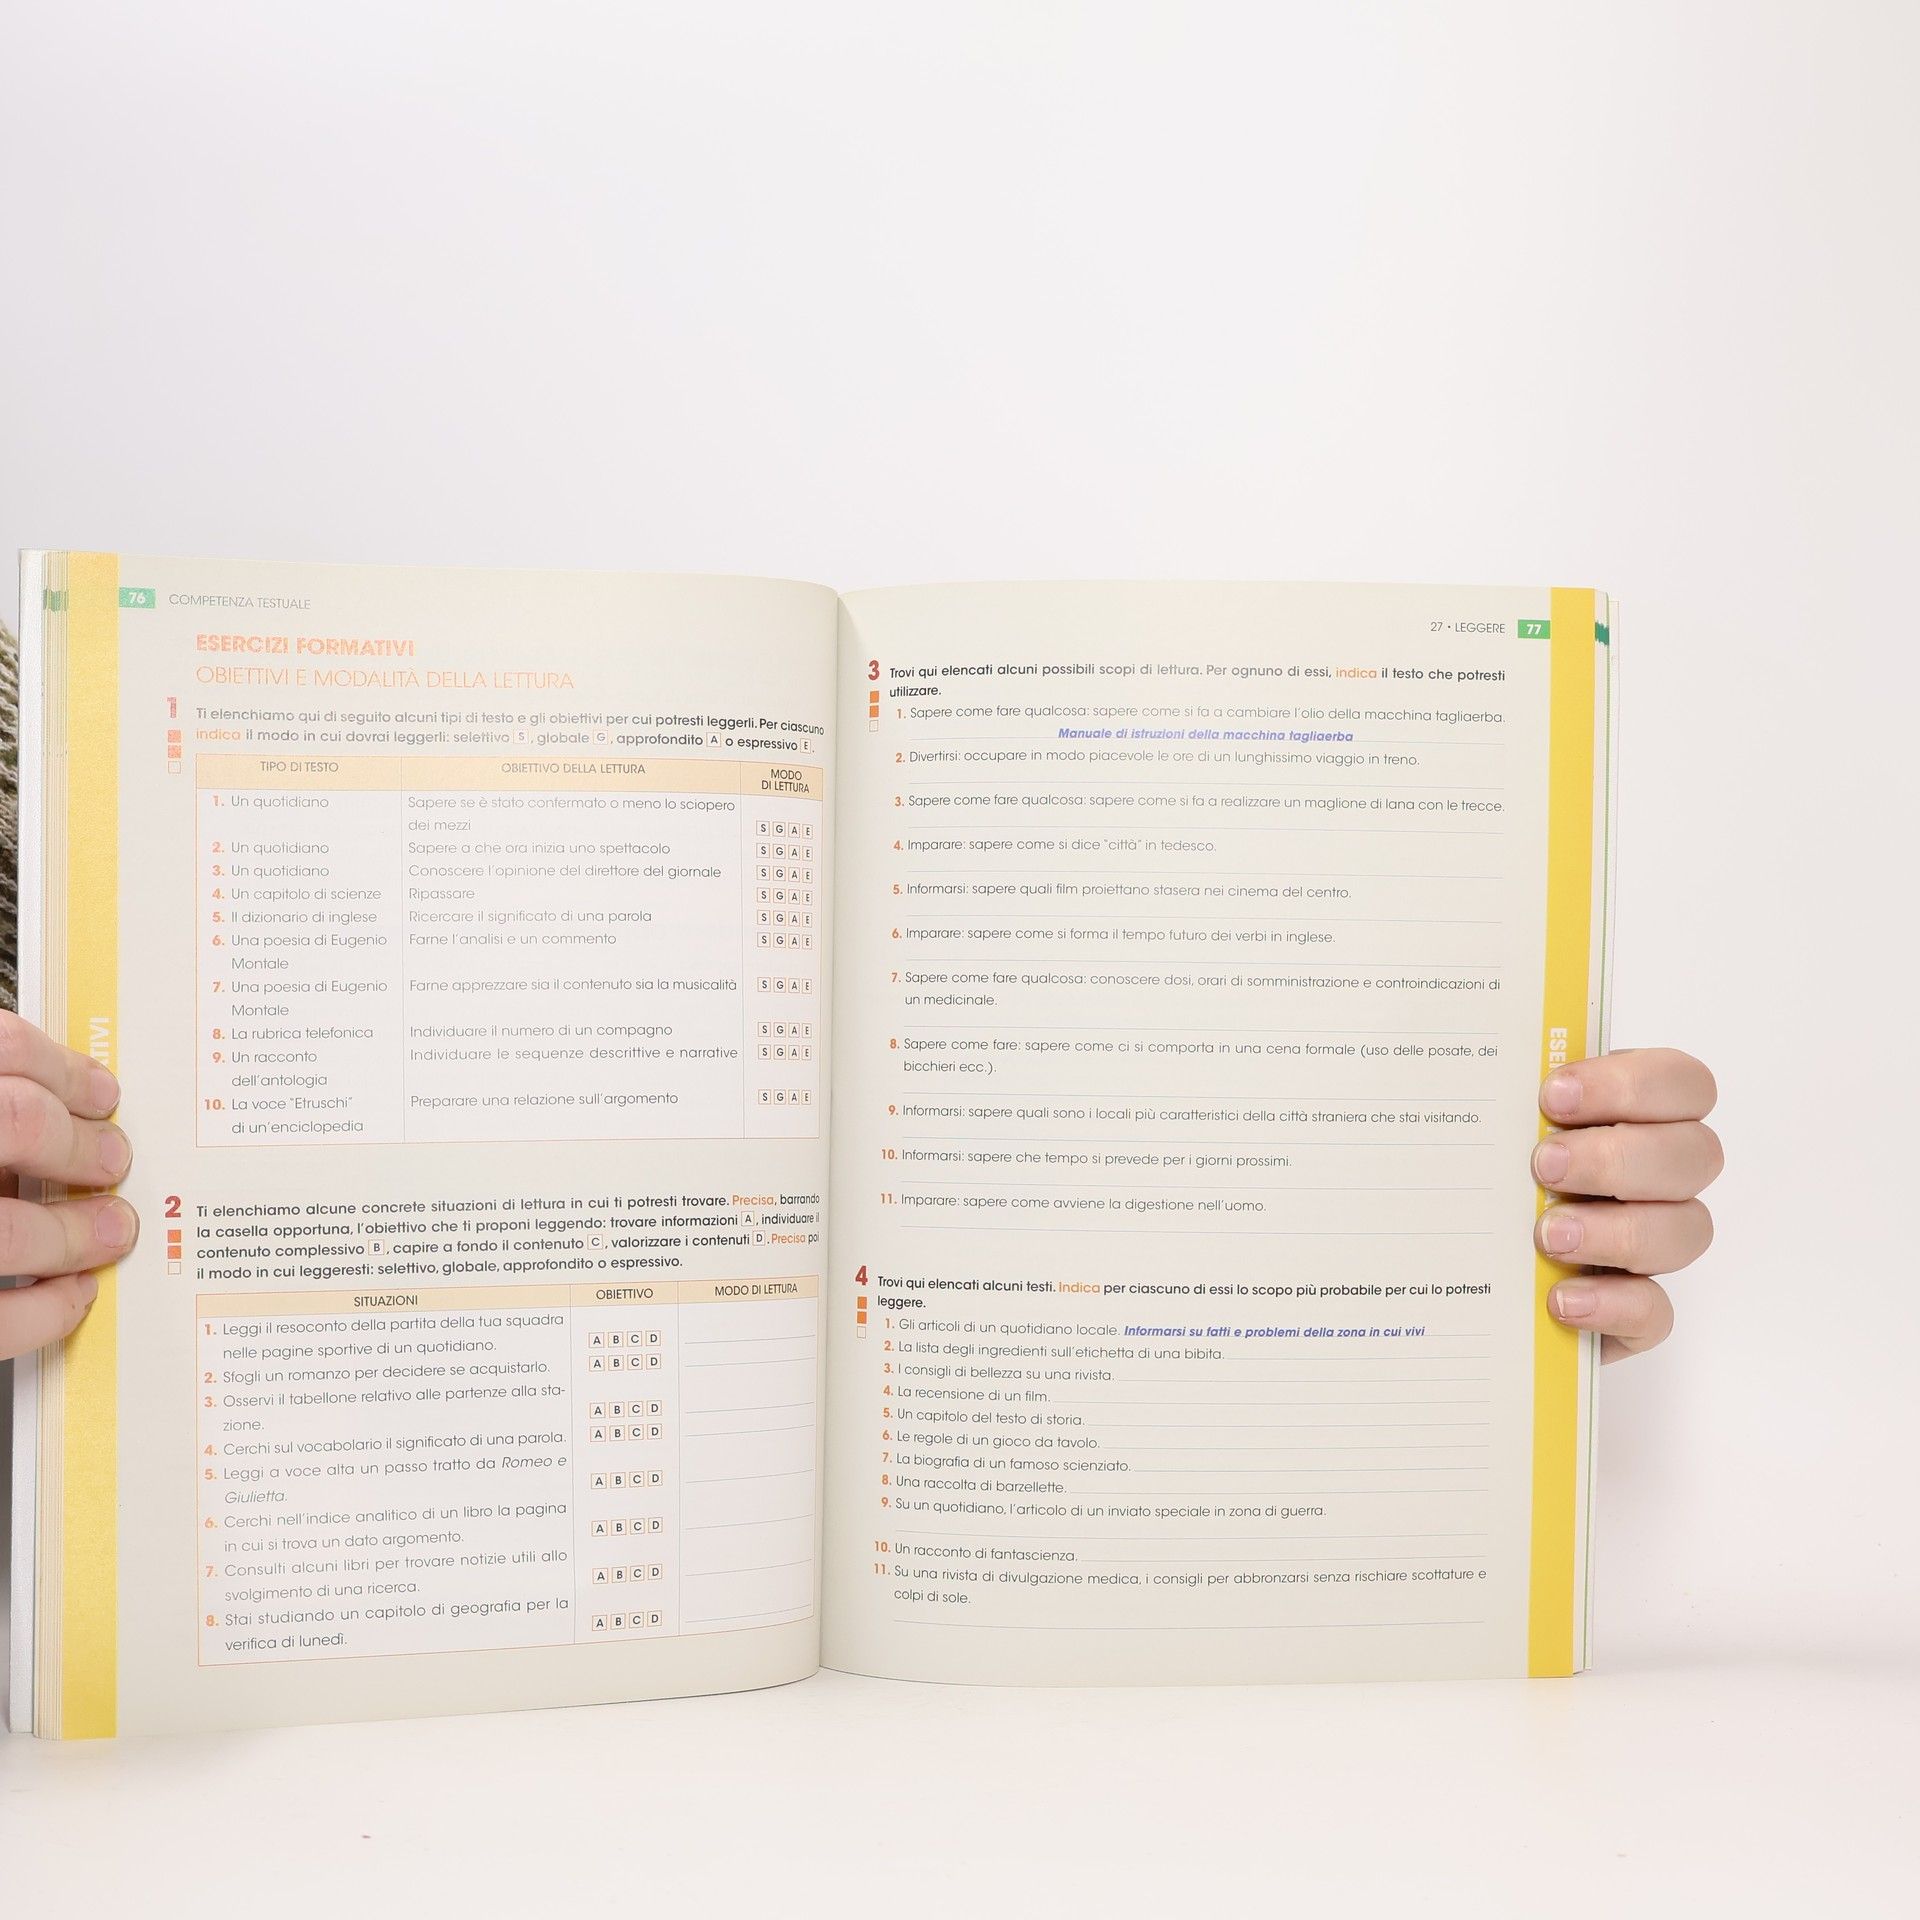 76 COMPETENZA TESTUALE
ESERCIZI FORMATIVI
OBIETTIVI E MODALITÀ DELLA LETTURA
1 Ti elenchiamo qui di seguito alcuni tipi di testo e gli obiettivi per cui potresti leggerli. Per ciascuno
indica il modo in cui dovrai leggerli: selettivo S, globale G, approfondito A o espressivo E.
TIPO DI TESTO OBIETTIVO DELLA LETTURA MODO
DI LETTURA
1. Un quotidiano Sapere se è stato confermato o meno lo sciopero
dei mezzi S G A E
2. Un quotidiano Sapere a che ora inizia uno spettacolo S G A E
3. Un quotidiano Conoscere l'opinione del direttore del giornale S G A E
4. Un capitolo di scienze Ripassare S G A E
5. Il dizionario di inglese Ricercare il significato di una parola S G A E
6. Una poesia di Eugenio Farne l'analisi e un commento S G A E
Montale
7. Una poesia di Eugenio Farne apprezzare sia il contenuto sia la musicalità S G A E
Montale
8. La rubrica telefonica Individuare il numero di un compagno S G A E
9. Un racconto Individuare le sequenze descrittive e narrative S G A E
dell'antologia
10. La voce "Etruschi" Preparare una relazione sull'argomento S G A E
di un'enciclopedia
2 Ti elenchiamo alcune concrete situazioni di lettura in cui ti potresti trovare. Precisa, barrando
la casella opportuna, l'obiettivo che ti proponi leggendo: trovare informazioni A, individuare il
contenuto complessivo B, capire a fondo il contenuto C, valorizzare i contenuti D. Precisa poi
il modo in cui leggeresti: selettivo, globale, approfondito o espressivo.
SITUAZIONI OBIETTIVO MODO DI LETTURA
1. Leggi il resoconto della partita della tua squadra
nelle pagine sportive di un quotidiano. A B C D
2. Sfogli un romanzo per decidere se acquistarlo. A B C D
3. Osservi il tabellone relativo alle partenze alla sta-
zione. A B C D
4. Cerchi sul vocabolario il significato di una parola. A B C D
5. Leggi a voce alta un passo tratto da Romeo e
Giulietta. A B C D
6. Cerchi nell'indice analitico di un libro la pagina
in cui si trova un dato argomento. A B C D
7. Consulti alcuni libri per trovare notizie utili allo
svolgimento di una ricerca. A B C D
8. Stai studiando un capitolo di geografia per la
verifica di lunedì. A B C D
27 • LEGGERE 77
3 Trovi qui elencati alcuni possibili scopi di lettura. Per ognuno di essi, indica il testo che potresti
utilizzare.
1. Sapere come fare qualcosa: sapere come si fa a cambiare l'olio della macchina tagliaerba.
Manuale di istruzioni della macchina tagliaerba
2. Divertirsi: occupare in modo piacevole le ore di un lunghissimo viaggio in treno.
3. Sapere come fare qualcosa: sapere come si fa a realizzare un maglione di lana con le trecce.
4. Imparare: sapere come si dice "città" in tedesco.
5. Informarsi: sapere quali film proiettano stasera nei cinema del centro.
6. Imparare: sapere come si forma il tempo futuro dei verbi in inglese.
7. Sapere come fare qualcosa: conoscere dosi, orari di somministrazione e controindicazioni di
un medicinale.
8. Sapere come fare: sapere come ci si comporta in una cena formale (uso delle posate, dei
bicchieri ecc.).
9. Informarsi: sapere quali sono i locali più caratteristici della città straniera che stai visitando.
10. Informarsi: sapere che tempo si prevede per i giorni prossimi.
11. Imparare: sapere come avviene la digestione nell'uomo.
4 Trovi qui elencati alcuni testi. Indica per ciascuno di essi lo scopo più probabile per cui lo potresti
leggere.
1. Gli articoli di un quotidiano locale. Informarsi su fatti e problemi della zona in cui vivi
2. La lista degli ingredienti sull'etichetta di una bibita.
3. I consigli di bellezza su una rivista.
4. La recensione di un film.
5. Un capitolo del testo di storia.
6. Le regole di un gioco da tavolo.
7. La biografia di un famoso scienziato.
8. Una raccolta di barzellette.
9. Su un quotidiano, l'articolo di un inviato speciale in zona di guerra.
10. Un racconto di fantascienza.
11. Su una rivista di divulgazione medica, i consigli per abbronzarsi senza rischiare scottature e
colpi di sole.